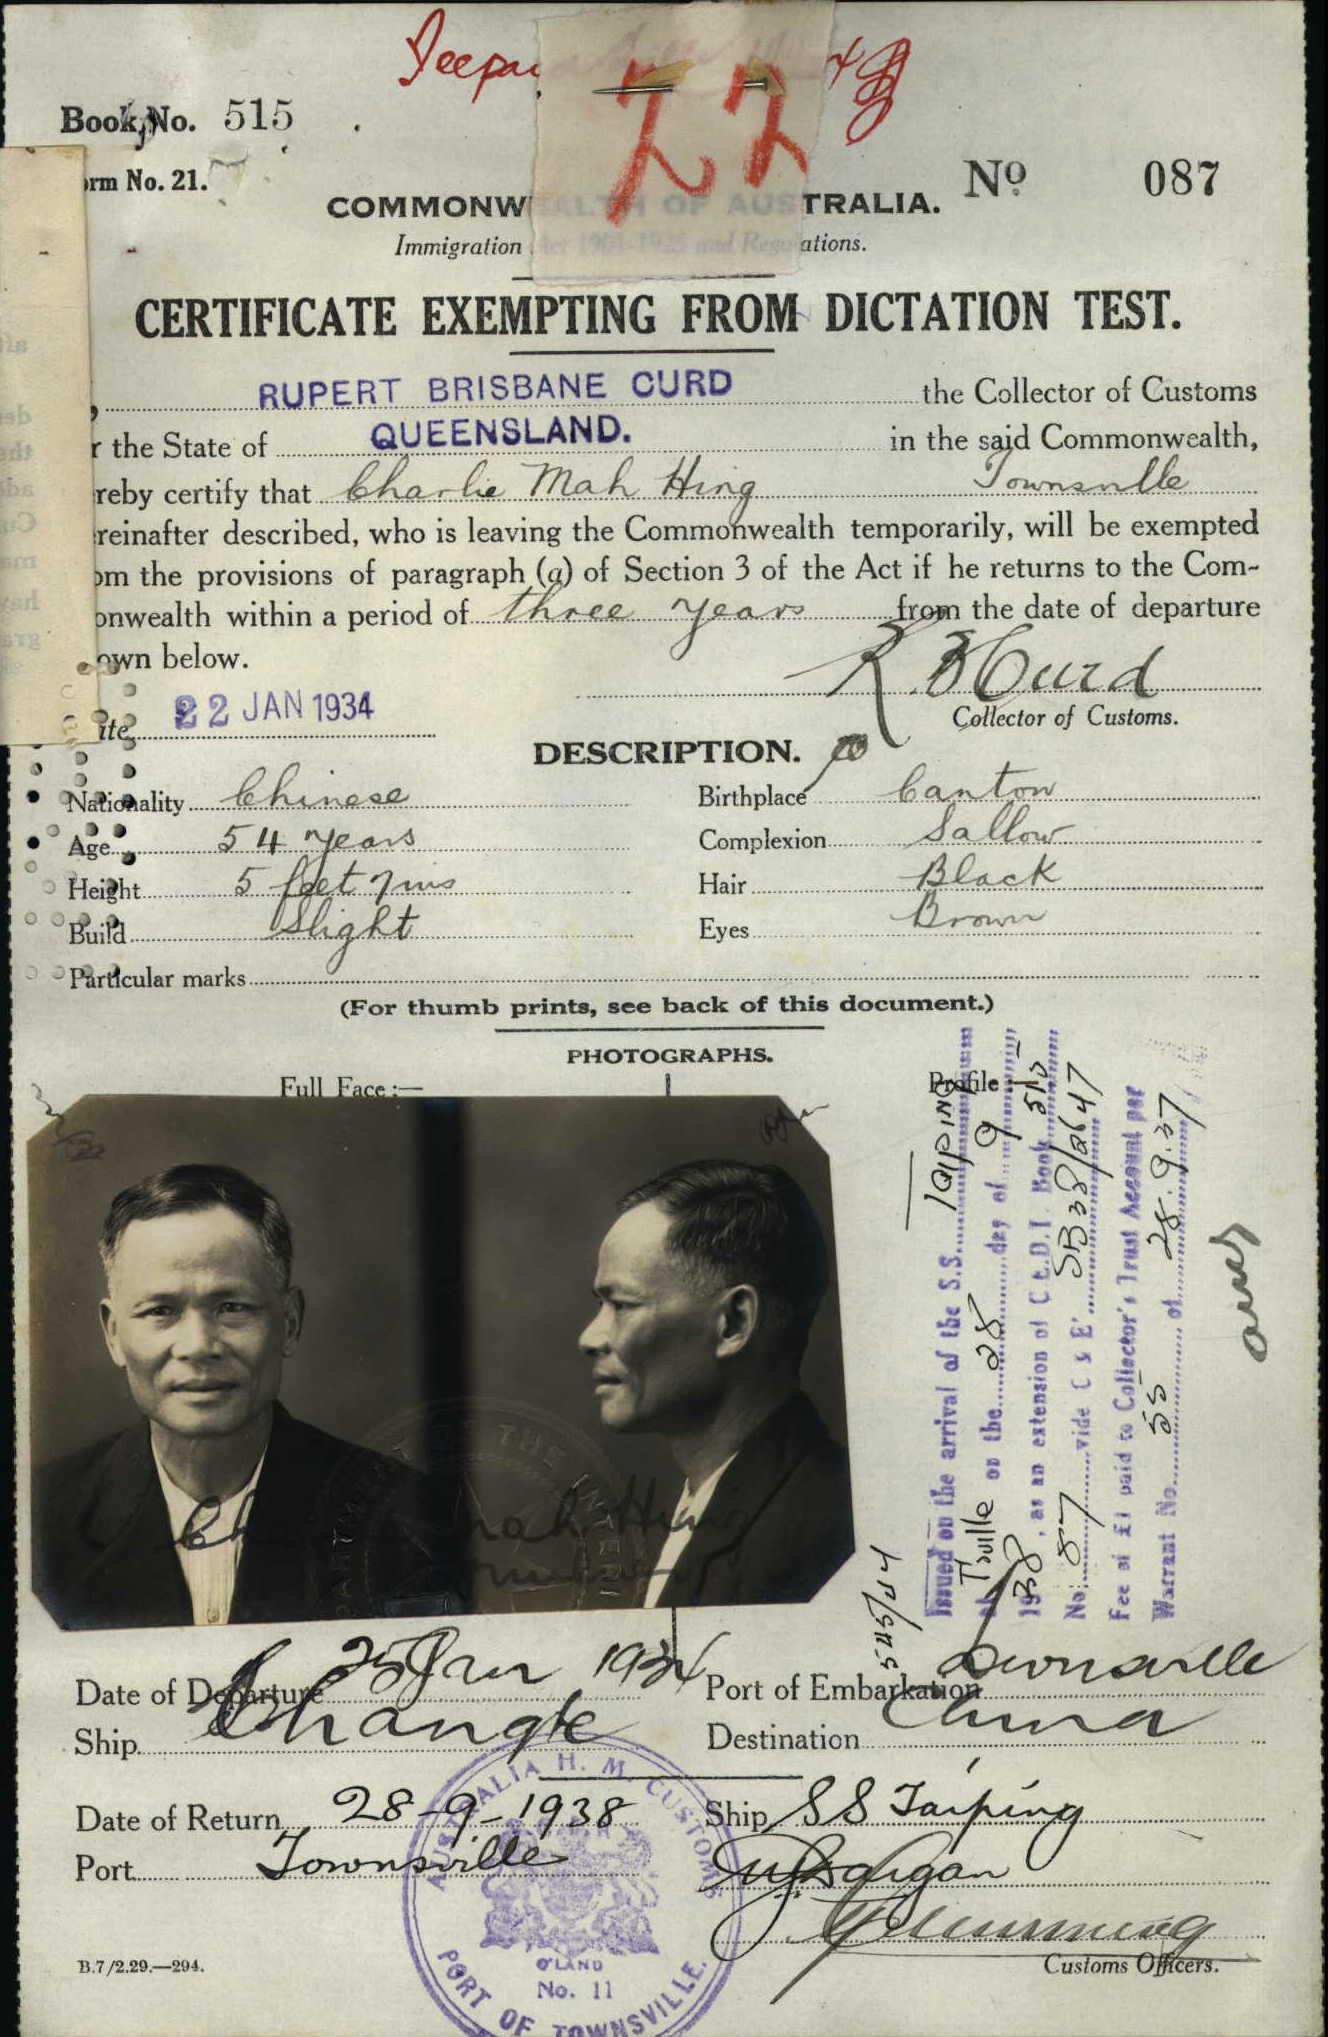 Book No. 515
orm No. 21.
No 087
22
COMMONWEALTH OF AUSTRALIA.
Immigration Act 1901-1925 and Regulations.
CERTIFICATE EXEMPTING FROM DICTATION TEST.
RUPERT BRISBANE CURD the Collector of Customs
r the State of QUEENSLAND. in the said Commonwealth,
reby certify that Charlie Mah Hing Townsville
reinafter described, who is leaving the Commonwealth temporarily, will be exempted
om the provisions of paragraph (a) of Section 3 of the Act if he returns to the Com-
onwealth within a period of three years from the date of departure
own below.
R B Curd
Collector of Customs.
ate 22 JAN 1934
DESCRIPTION.
Nationality Chinese Birthplace Canton
Age 54 years Complexion Sallow
Height 5 feet 7 ins Hair Black
Build Slight Eyes Brown
Particular marks
(For thumb prints, see back of this document.)
PHOTOGRAPHS.
Full Face:— Profile
Mah Hing
Issued on the arrival of the S.S. Taiping
at T'ville on the 28 day of 9
1938, as an extension of C.E.D.T. Book 515
No. 87 vide C & E. SB38/2647
Fee of £1 paid to Collector's Trust Account per
Warrant No. 55 of 28.9.37
Date of Departure 25 Jan 1934 Port of Embarkation Townsville
Ship Changte Destination China
Date of Return 28-9-1938 Ship SS Taiping
Port Townsville
Customs Officers.
AUSTRALIA H. M. CUSTOMS
Q'LAND
No. 11
PORT OF TOWNSVILLE.
B.7/2.29.—294.